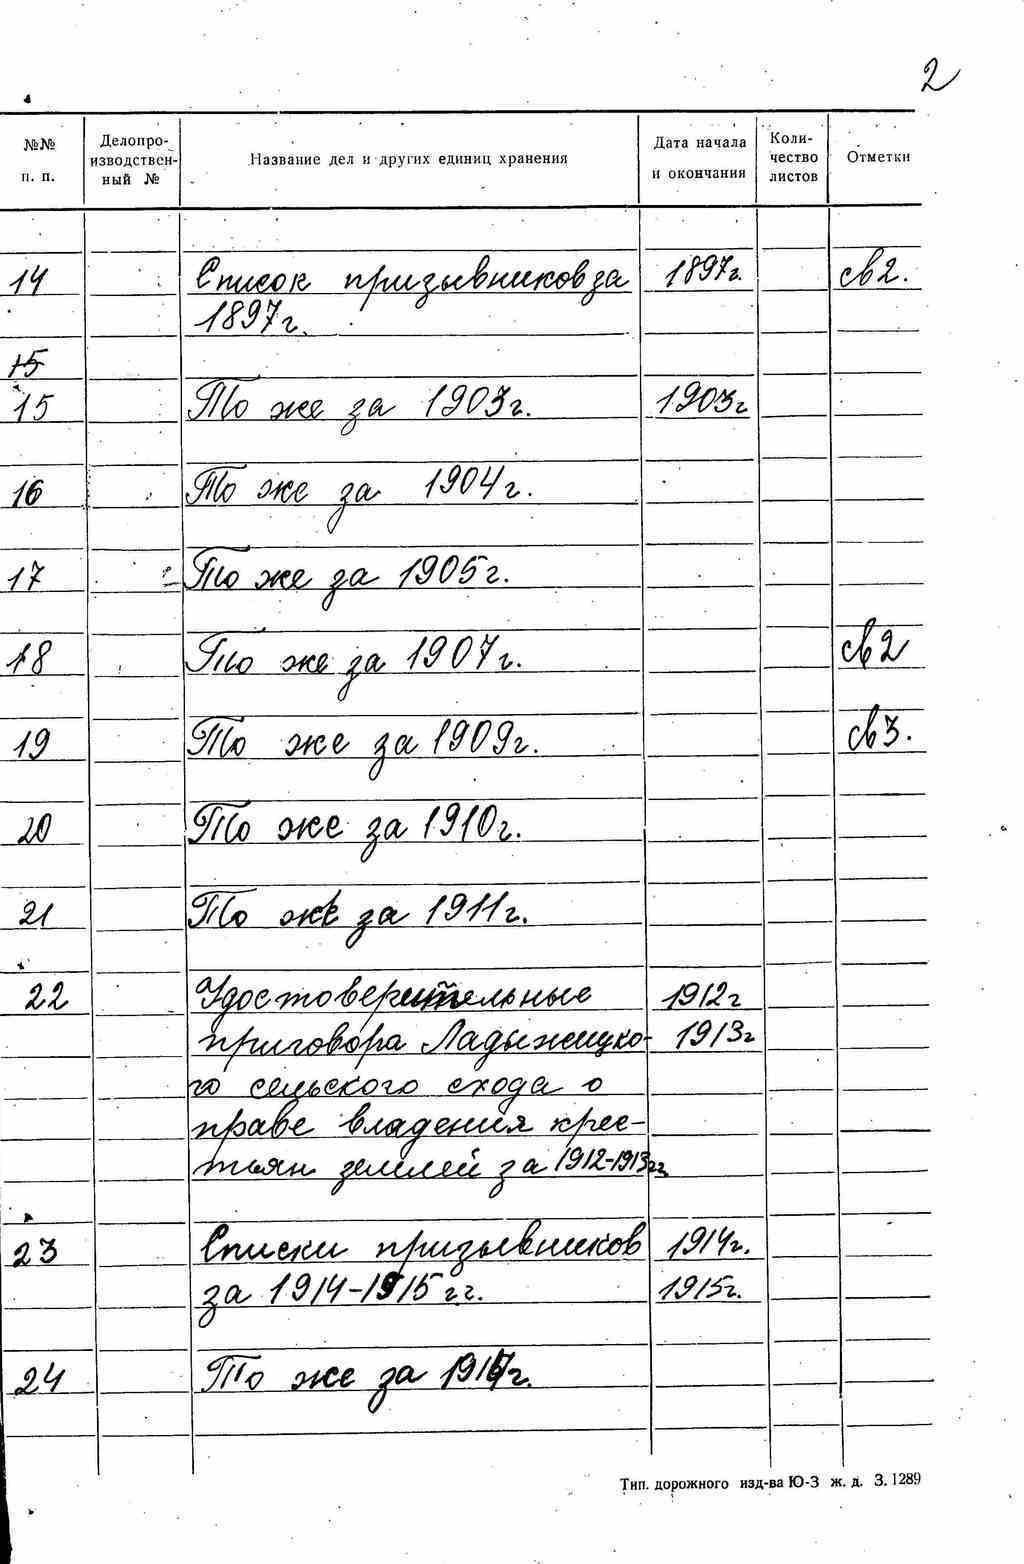 2
№№ п. п. Делопроизводствен- ный № Название дел и других единиц хранения Дата начала и окончания Коли- чество листов Отметки
14 Список призывников за 1897г. св2.
1897г.
15
15 То же за 1903г. 1903г
16 То же за 1904г.
17 То же за 1905г.
18 То же за 1907г. св2
19 То же за 1909г. св3.
20 То же за 1910г.
21 То же за 1911г.
22 Удостоверительные 1912г
приговора Ладыжицко- 1913г
го сельского схода о
праве владения крес-
тьян землей за 1912-1913гг
23 Списки призывников 1914г.
за 1914-1915 гг. 1915г.
24 То же за
Тип. дорожного изд-ва Ю-З ж. д. З. 1289